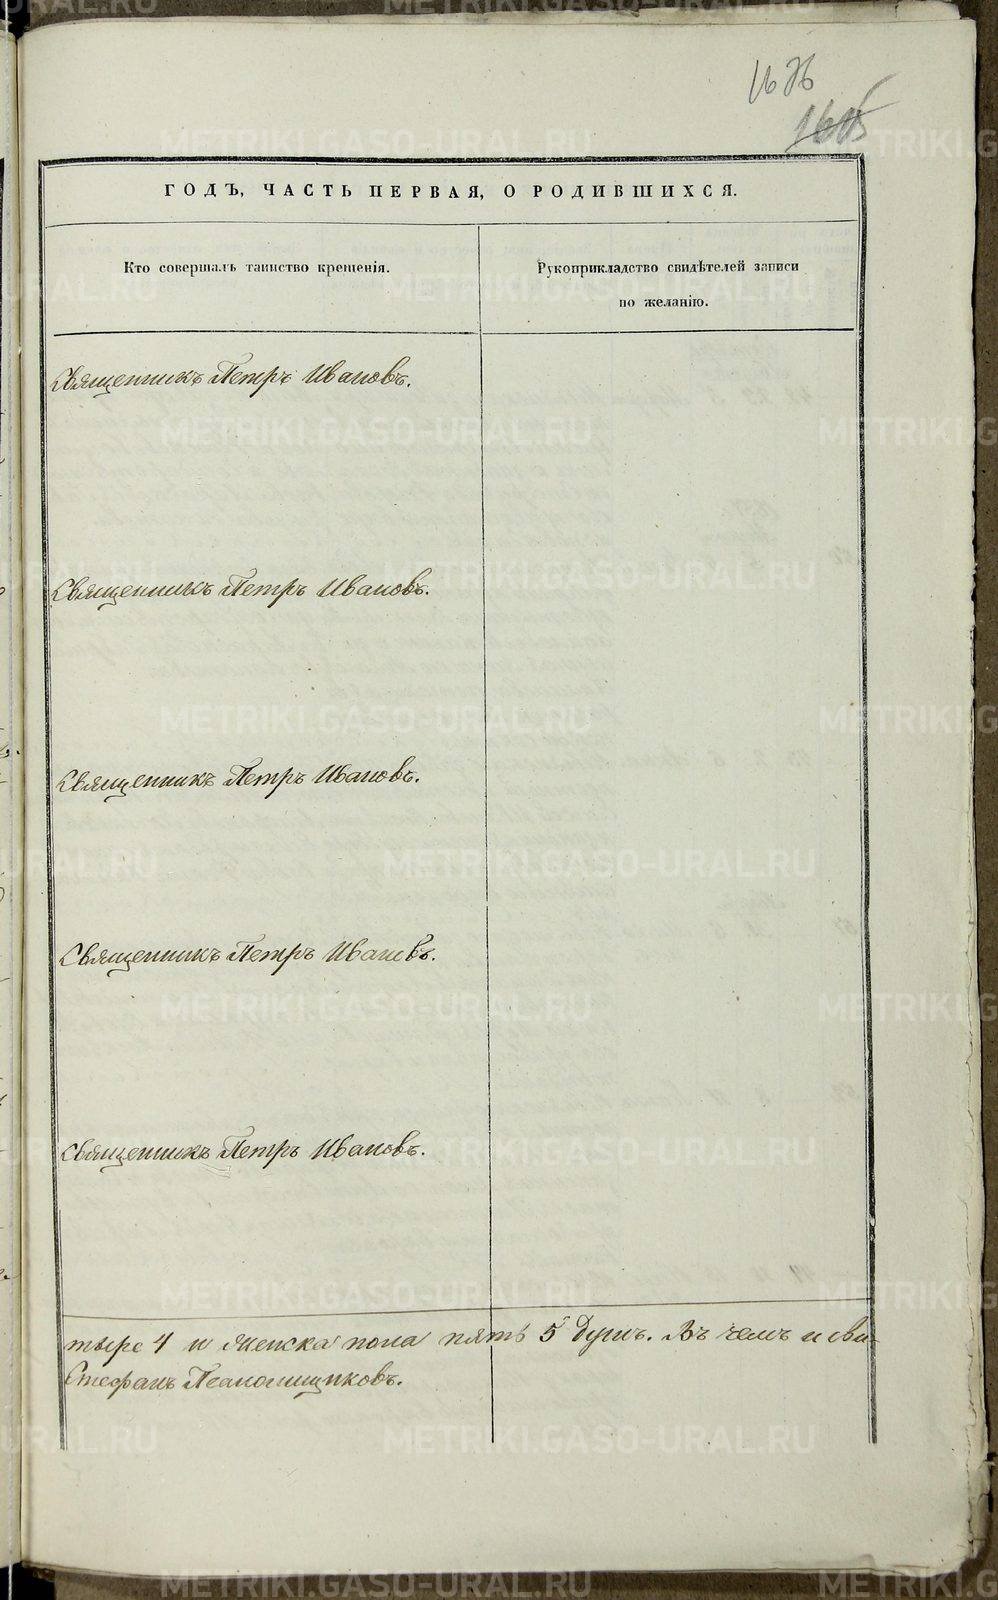 1605
ГОДЪ, ЧАСТЬ ПЕРВАЯ, О РОДИВШИХСЯ.
Кто совершалъ таинство крещенія.
Рукоприкладство свидѣтелей записи
по желанію.
Священникъ Петръ Ивановъ.
Священникъ Петръ Ивановъ.
Священникъ Петръ Ивановъ.
Священникъ Петръ Ивановъ.
Священникъ Петръ Ивановъ.
тыре 4 и женска пола пять 5 душъ. Въ чемъ и сви-
Стефанъ Псаломщиковъ.
METRIKI.GASO-URAL.RU